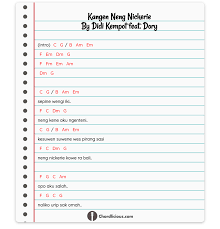 Kangen Neng Nickerie
By Didi Kempot feat. Dory
(Intro) C G / B Am Em
F Em Dm G
F Em Em Am
Dm G
C G / B Am Em
sepine wengi iki..
F C Dm G
neng kene aku ngenteni..
C G / B Am Em
kesuwen suwene wes pirang sasi
F C Dm G
neng nickerie kowe ra bali.
F G C Am
opo aku salah..
F G C G
naliko urip sak omah..
Chordlicious.com